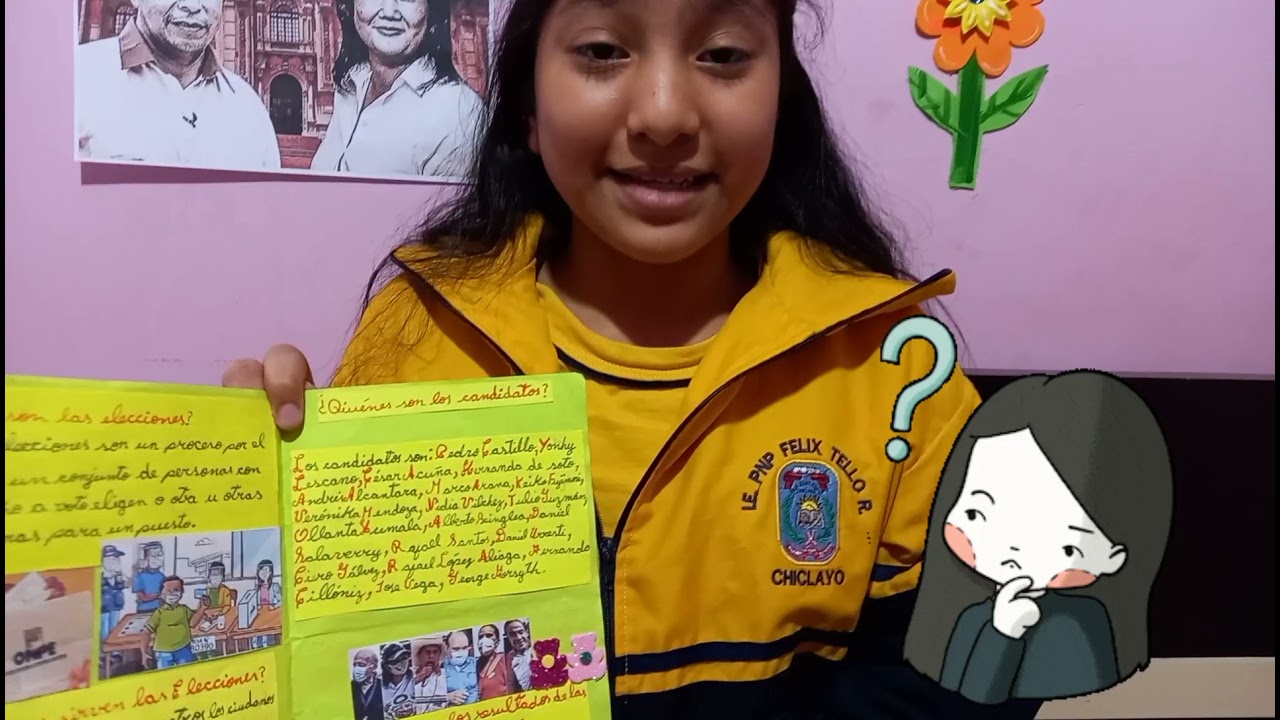 son las elecciones?
elecciones son un proceso por el
un conjunto de personas con
o a voto eligen o otra u otras
ras para un puesto.
ONPE
sirven las Elecciones?
los ciudanos
¿Quiénes son los candidatos?
Los candidatos son: Pedro Castillo, Yonhy
Lescano, César Acuña, Hernando de soto,
Andrés Alcantara, Marco Arana, Keiko Fujimori,
Verónika Mendoza, Nidia Vilchez, Julio Guzmán,
Ollanta Humala, Alberto Beinglea, Daniel
Salaverry, Rafael Santos, Daniel Urresti,
Ciro Gálvez, Rafael López Aliaga, Hernando
Cillóniz, Jose Vega, George Forsyth.
los resultados de las
I.E. PNP FELIX TELLO R.
CHICLAYO
?